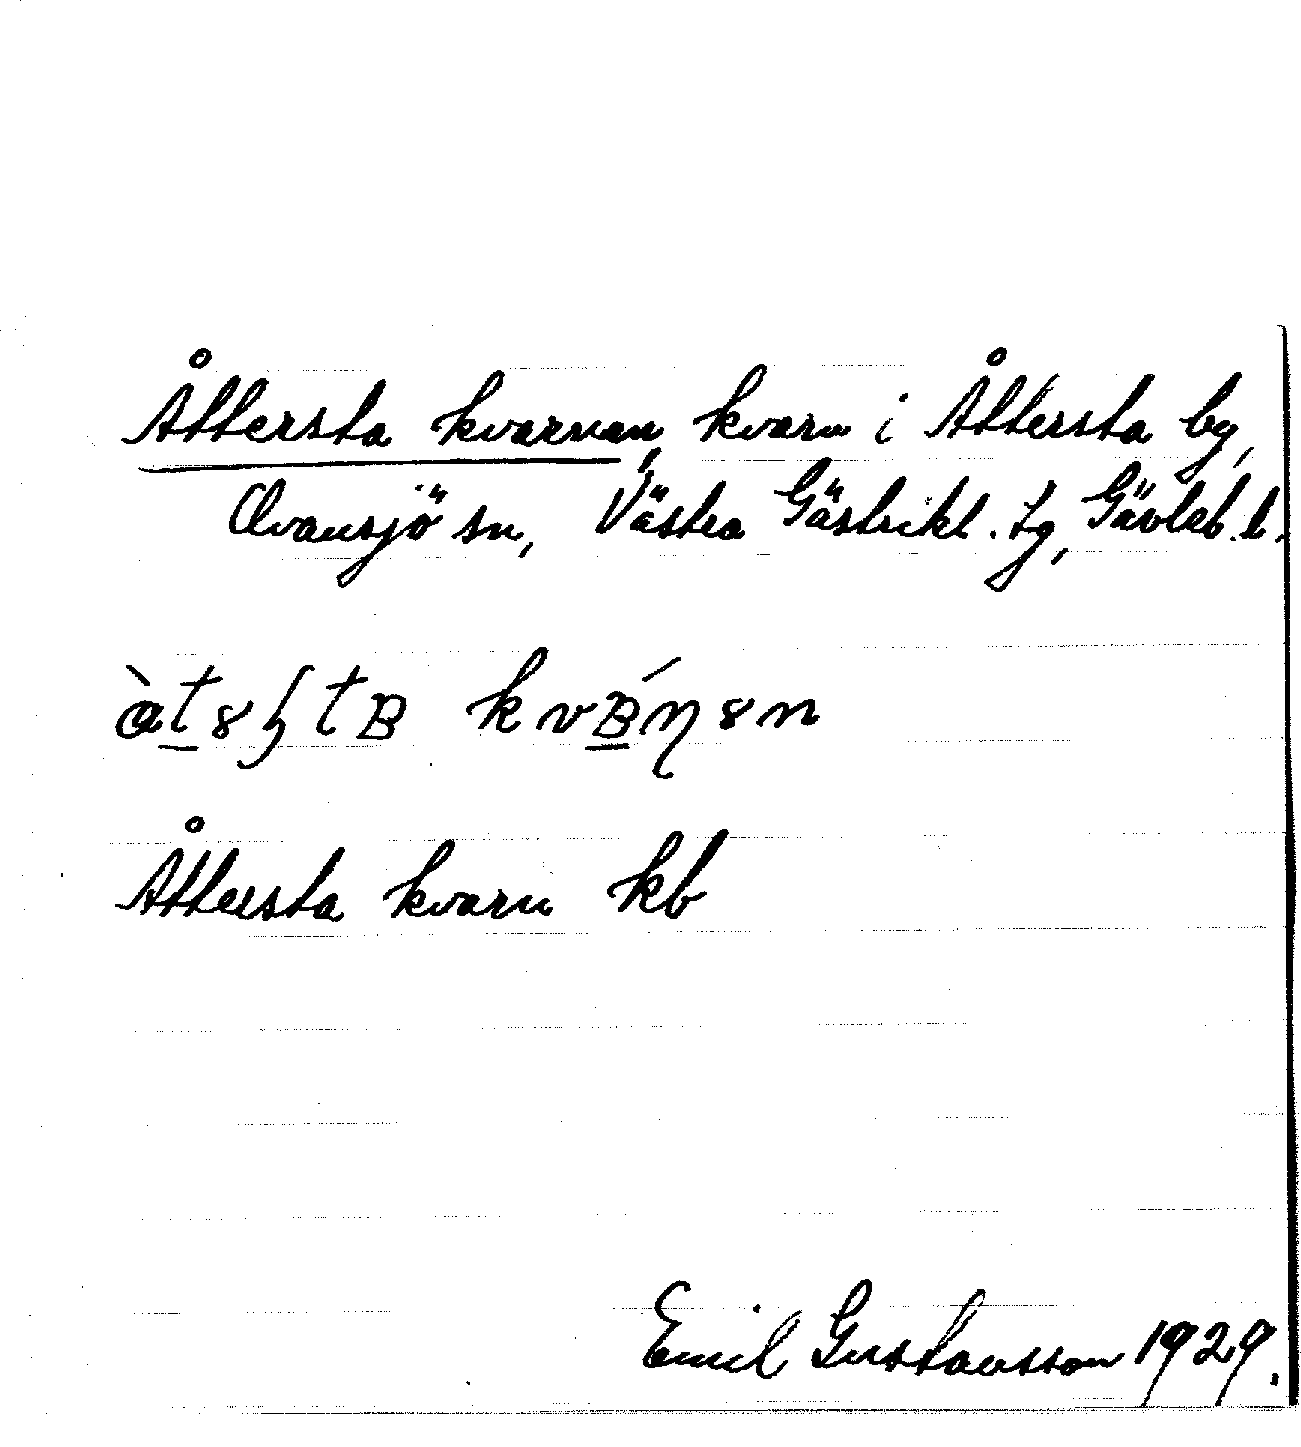 Åttersta kvarnan, kvarn i Åttersta by,
Ovansjö sn, Västra Gästrikl. tg, Gävleb. l.
Åttersta kvarn kb
Emil Gustavsson 1929.